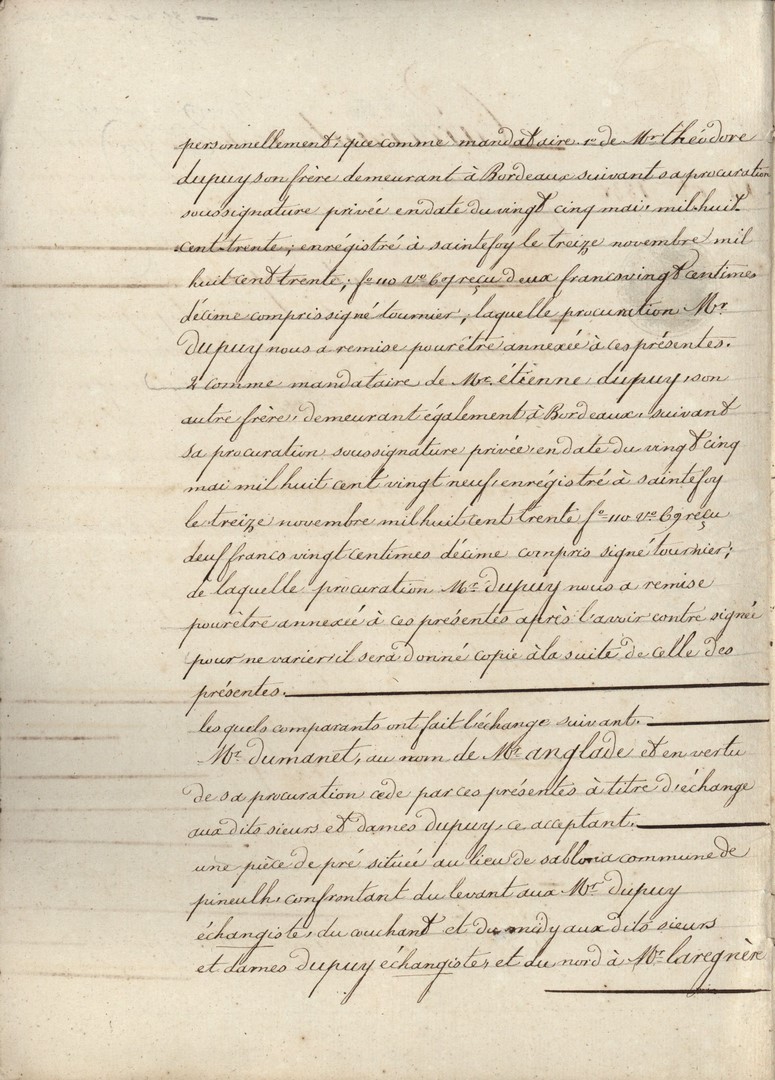 personnellement, que comme mandataire 1º de Mr. théodore
dupuy son frère demeurant à Bordeaux suivant sa procuration
soussignature privée en date du vingt cinq mai, mil huit
cent-trente; enrégistré à saintefoy le treize novembre mil
huit cent trente; fº 110 vº 69 reçu deux francs vingt centimes
décime compris signé tournier, laquelle procuration Mr.
Dupuy nous a remise pour être annexée à ces présentes.
2 comme mandataire de Mr. étienne, dupuy, son
autre frère, demeurant également à Bordeaux, suivant
sa procuration soussignature privée, en date du vingt cinq
mai mil huit cent vingt neuf, enrégistré à saintefoy
le treize novembre mil huit cent trente fº 110 vº 69 reçu
deuf francs vingt centimes décime compris signé tournier;
de laquelle procuration Mr. Dupuy nous a remise
pour être annexeé à ces présentes après l'avoir contre signée
pour ne varier, il sera donné copie à la suite de celle des
présentes.
les quels comparants ont fait l'échange suivant.
Mr. Dumanet, au nom de Mr. anglade et en vertu
de sa procuration cede par ces présentes à titre d'échange
aux dits sieurs et dames Dupuy, ce acceptant.
une pièce de pré située au lieu de sablona commune de
pineulh, confrontant du levant aux Mr. Dupuy
échangiste, du couchant et du midy aux dits sieurs
et dames Dupuy échangiste, et du nord à Mr. laregnère